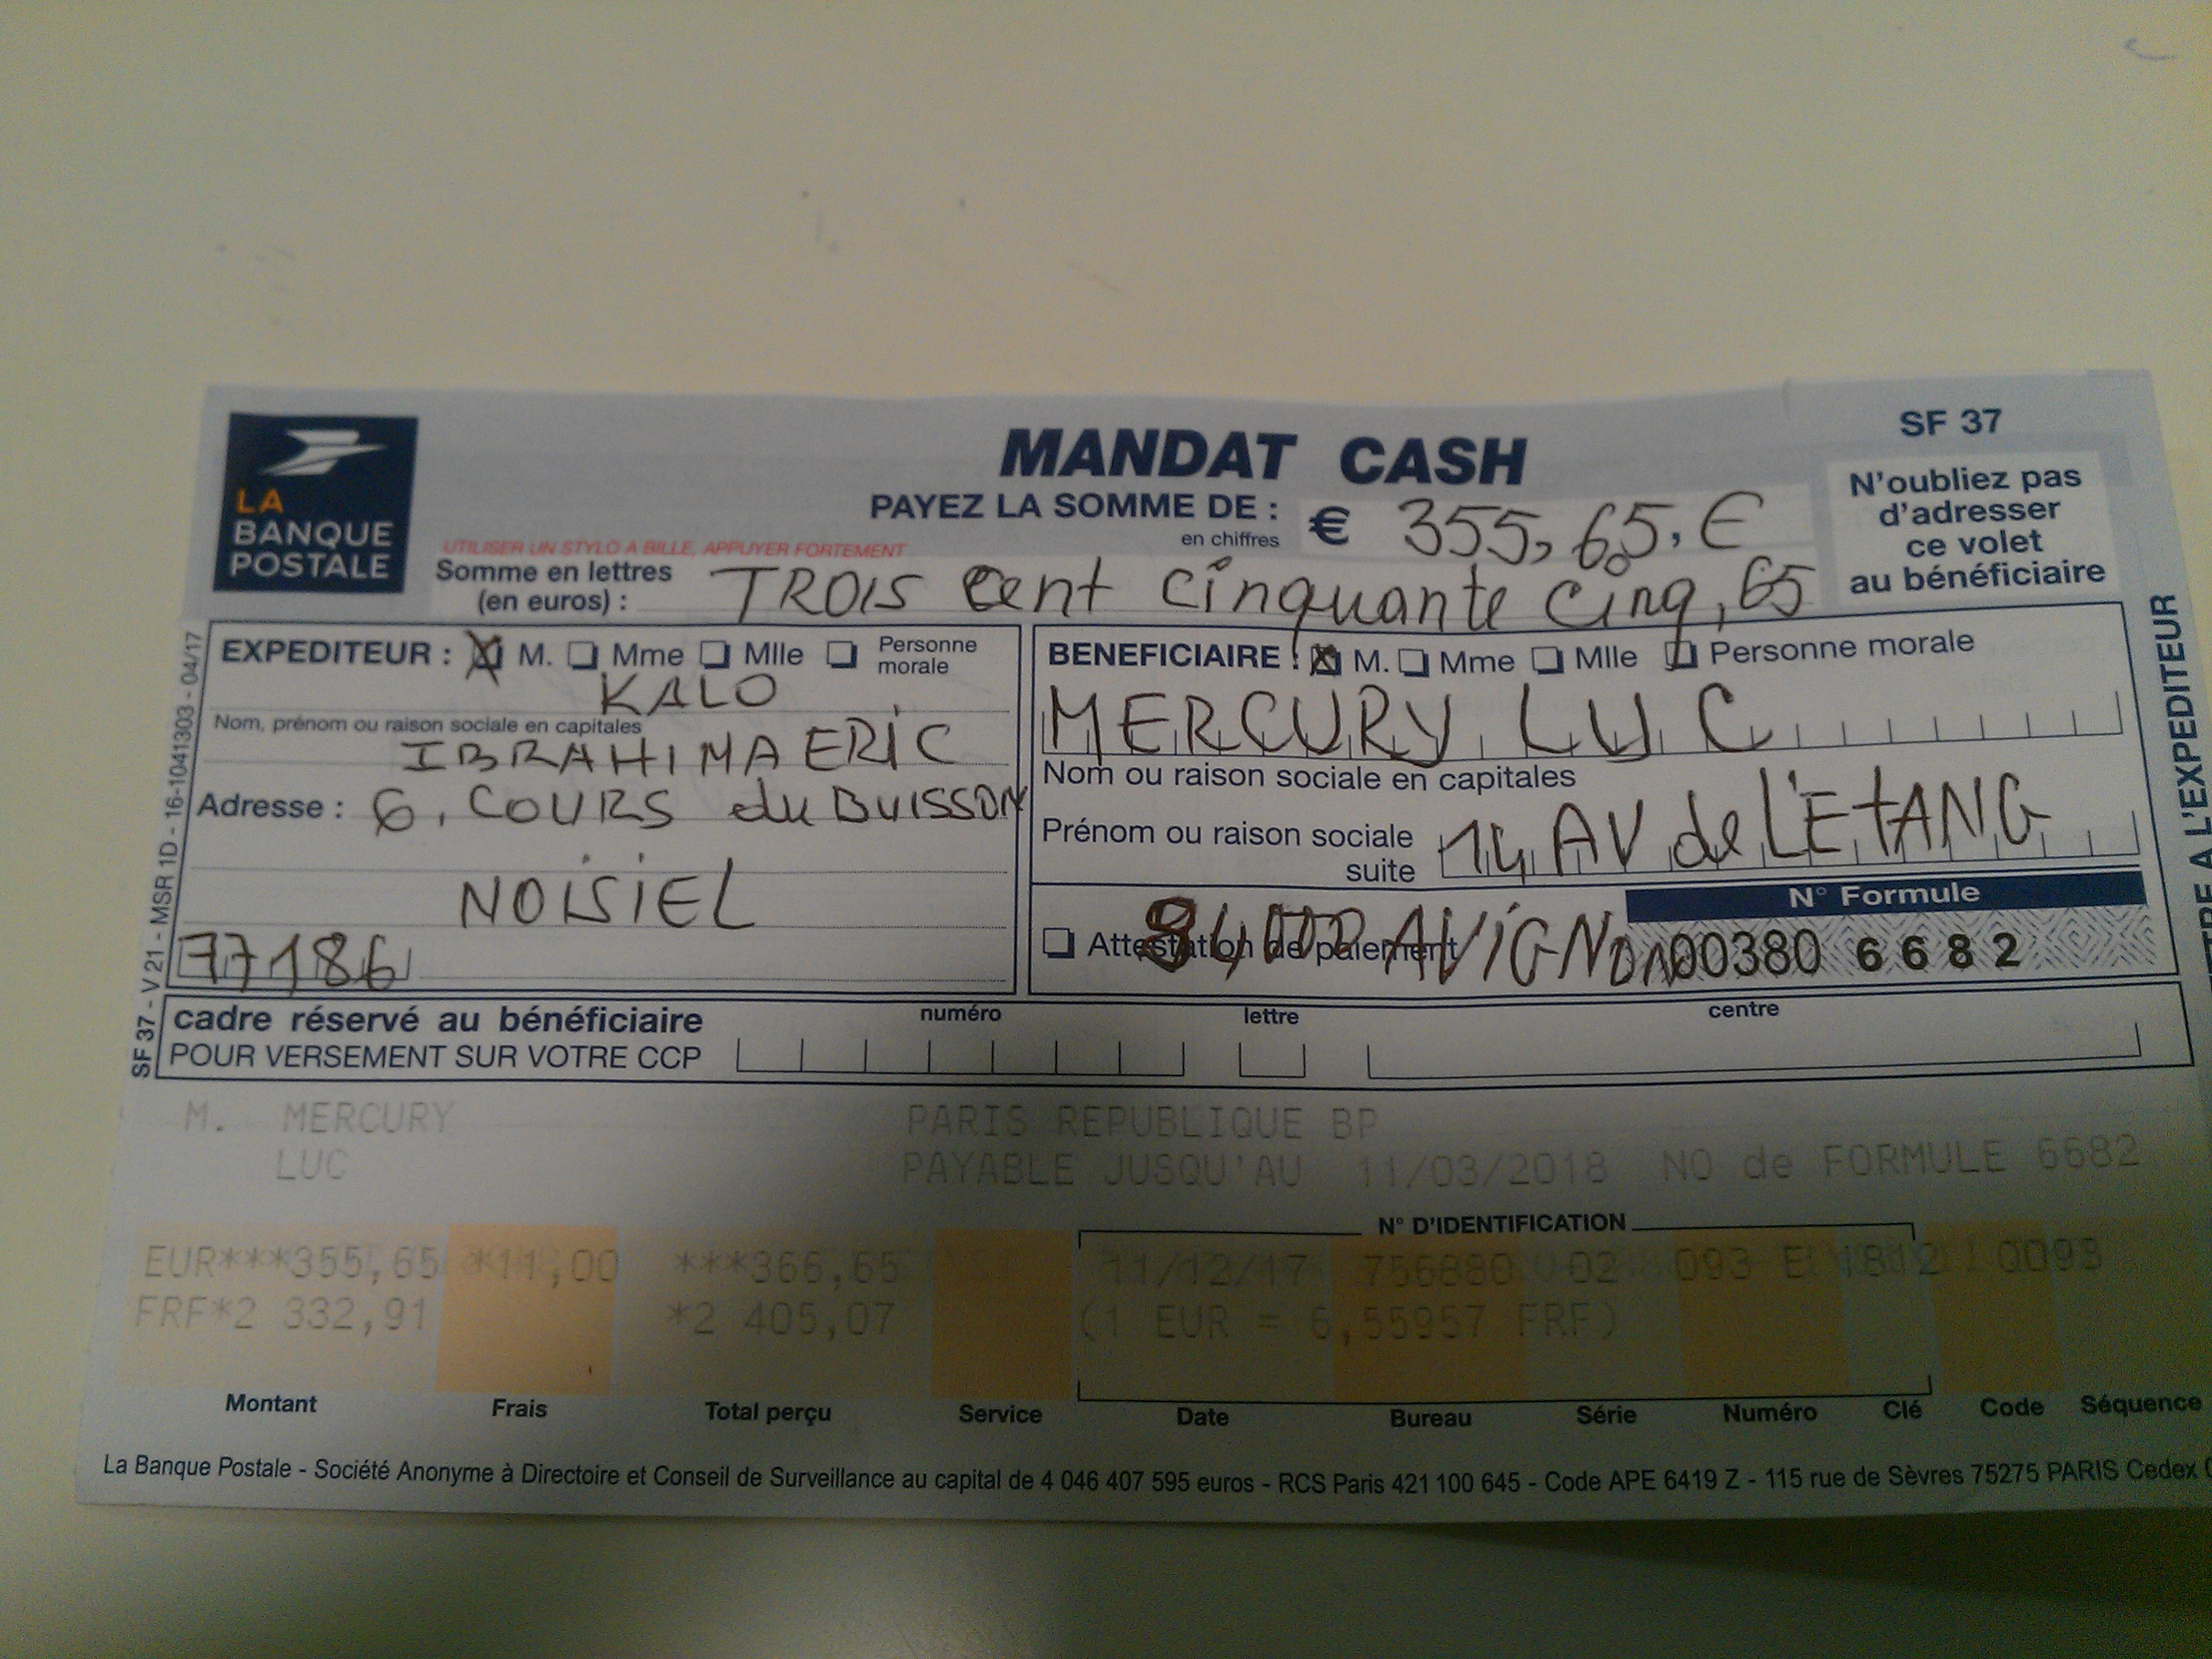 SF 37
MANDAT CASH
LA
BANQUE
POSTALE
PAYEZ LA SOMME DE :
en chiffres
€ 355,65,€
N'oubliez pas
d'adresser
ce volet
au bénéficiaire
UTILISER UN STYLO A BILLE, APPUYER FORTEMENT
Somme en lettres
(en euros) :
TROIS cent cinquante cinq, 65
EXPEDITEUR : M. Mme Mlle Personne
morale
KALO
Nom, prénom ou raison sociale en capitales
IBRAHIMA ERIC
Adresse : 6, COURS du BUISSON
NOISIEL
77186
BENEFICIAIRE : M. Mme Mlle Personne morale
MERCURY LUC
Nom ou raison sociale en capitales
Prénom ou raison sociale
suite
14 AV de L'ETANG
N° Formule
Attestation de paiement
84000 AVIGNON
00380 6682
SF 37 - V 21 - MSR 1D - 16-1041303 - 04/17
A L'EXPEDITEUR
cadre réservé au bénéficiaire
POUR VERSEMENT SUR VOTRE CCP
numéro lettre centre
M. MERCURY
LUC
PARIS REPUBLIQUE BP
PAYABLE JUSQU'AU 11/03/2018 NO de FORMULE 6682
N° D'IDENTIFICATION
EUR***355,65 *11,00 ***366,65 11/12/17 756880 02 093 E 0093
FRF*2 332,91 *2 405,07 (1 EUR = 6,55957 FRF)
Montant Frais Total perçu Service Date Bureau Série Numéro Clé Code Séquence
La Banque Postale - Société Anonyme à Directoire et Conseil de Surveillance au capital de 4 046 407 595 euros - RCS Paris 421 100 645 - Code APE 6419 Z - 115 rue de Sèvres 75275 PARIS Cedex